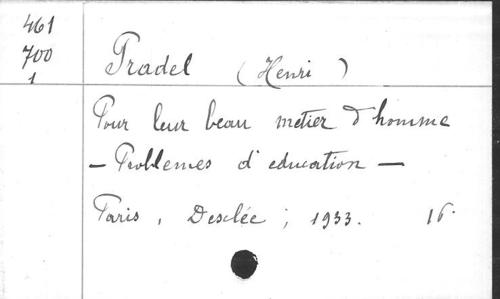 461
700
1
Pradel (Henri)
Pour leur beau metier d'homme
- Problemes d'education -
Paris, Desclée; 1933. 16°